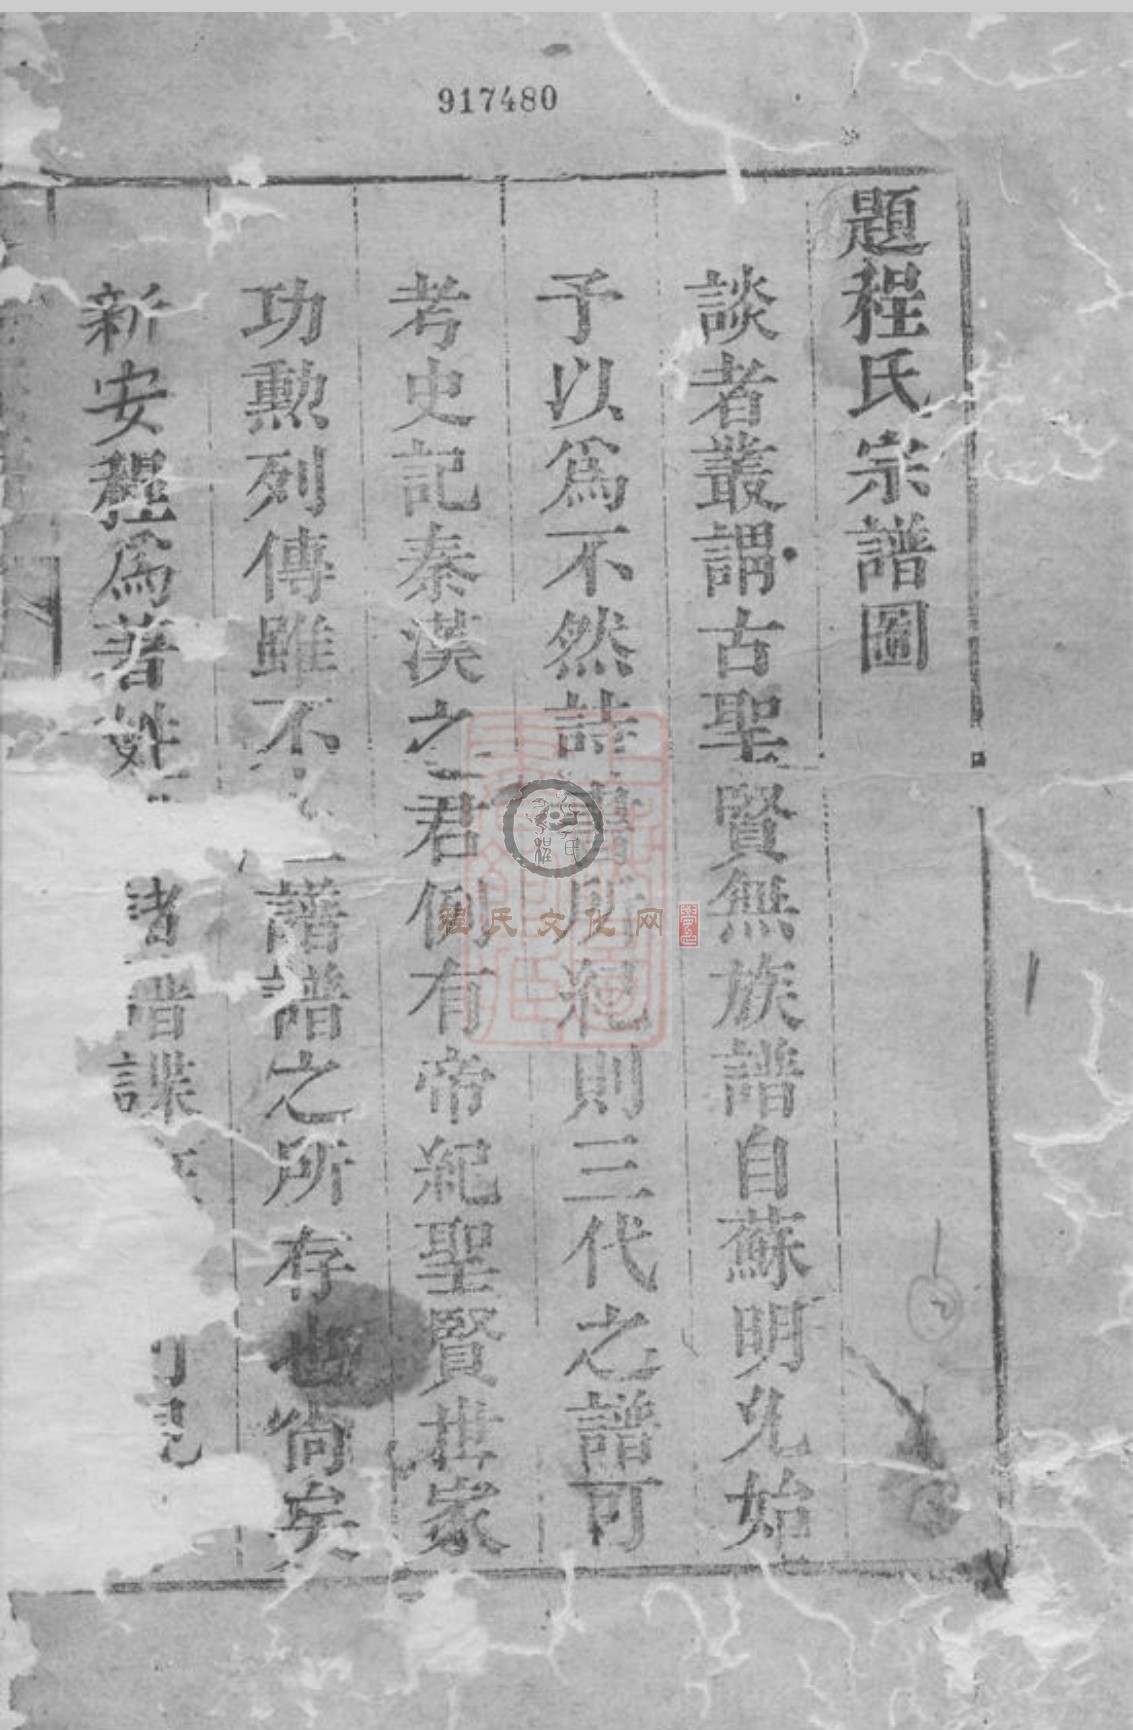 917480
題程氏宗譜圖
談者叢謂古聖賢無族譜自蘇明允始
予以爲不然詩書所紀則三代之譜可
考史記秦漢之君例有帝紀聖賢世家
功勲列傳雖不譜譜之所存也尚矣
新安程爲著姓諸譜諜
程氏文化网